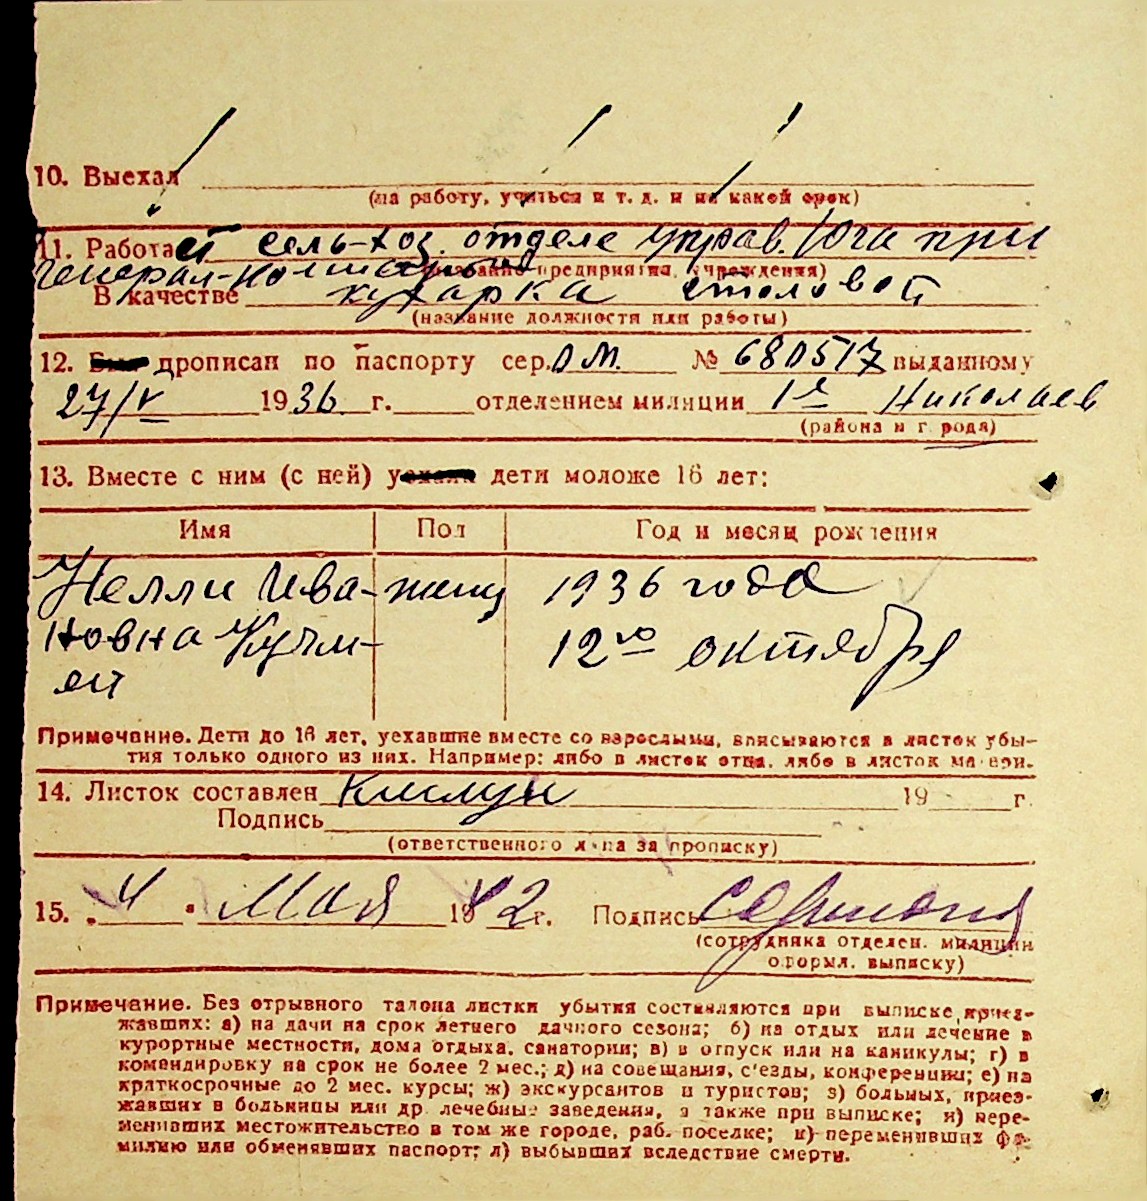 10. Выехал
(на работу, учиться и т. д. и на какой срок)
11. Работает сель-хоз. отделе управ. Юга при
Генерал-
(название предприятия, учреждения)
В качестве кухарка столовой
(название должности или работы)
12. прописан по паспорту сер. О М. № 680517 выданному
27/V 1936 г. отделением милиции 1й Николаев
(района и города)
13. Вместе с ним (с ней) дети моложе 16 лет:
Имя Пол Год и месяц рождения
Нелли Ива- женщ 1936 года
новна Кучм- 12го октября
ей
Примечание. Дети до 16 лет, уехавшие вместе со взрослыми, вписываются в листок убы-
тия только одного из них. Например: либо в листок отца, либо в листок матери.
14. Листок составлен 19 г.
Подпись
(ответственного лица за прописку)
15. „4" Мая 1942 г. Подпись
(сотрудника отделен. милиции
оформл. выписку)
Примечание. Без отрывного талона листки убытия составляются при выписке приез-
жавших: а) на дачи на срок летнего дачного сезона; б) на отдых или лечение в
курортные местности, дома отдыха, санатории; в) в отпуск или на каникулы; г) в
командировку на срок не более 2 мес.; д) на совещания, с'езды, конференции; е) на
краткосрочные до 2 мес. курсы; ж) экскурсантов и туристов; з) больных, приез-
жавших в больницы или др. лечебные заведения, а также при выписке; и) пере-
менивших местожительство в том же городе, раб. поселке; к) переменивших фа-
милию или обменявших паспорт; л) выбывших вследствие смерти.